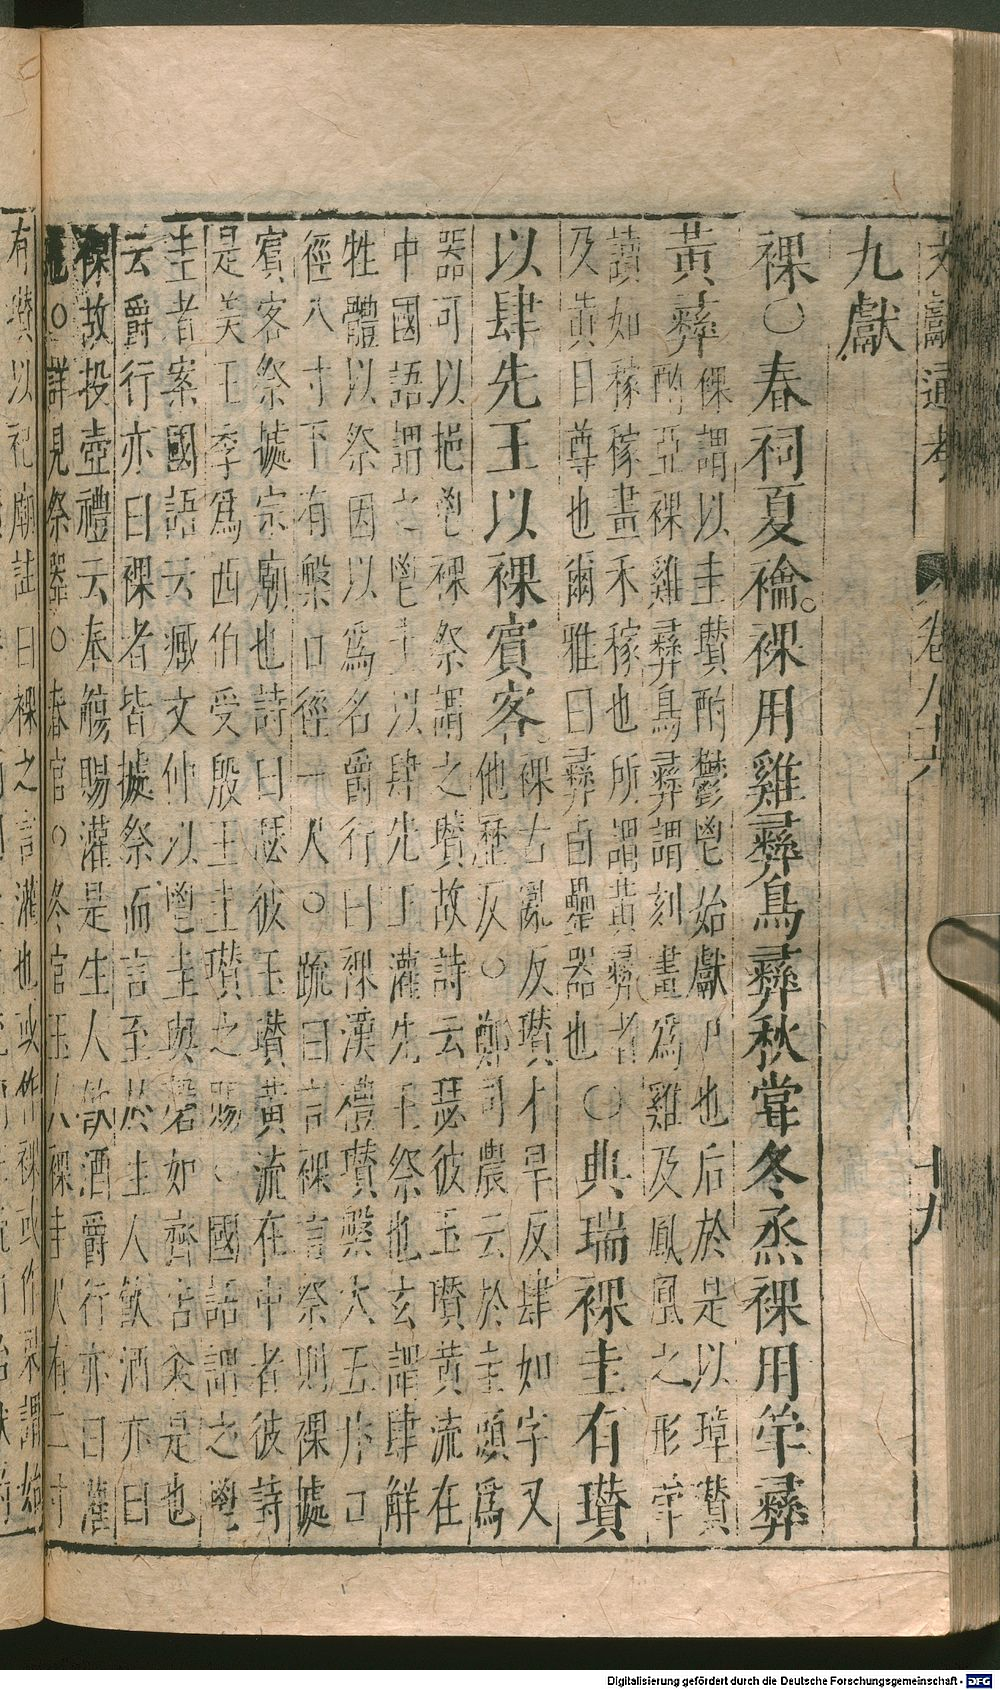 文獻通考 卷九十八 十九
九獻
祼○春祠夏禴祼用雞彝鳥彝秋嘗冬烝祼用斝彝
黃彝
祼謂以圭瓚酌鬱鬯始獻尸也后於是以璋瓚
酌亞祼雞彝鳥彝謂刻畫爲雞及鳳凰之形斝
讀如稼稼畫禾稼也所謂黃彝者
及黃目尊也爾雅曰彝卣罍器也
○典瑞祼圭有瓚
以肆先王以祼賓客
祼古亂反瓚才旱反肆如字又
他歷反○鄭司農云於圭頭爲
器可以挹鬯祼祭謂之瓚故詩云瑟彼玉瓚黃流在
中國語謂之鬯圭以肆先王灌先王祭也玄謂肆解
牲體以祭因以爲名爵行曰祼漢禮瓚槃大五升口
徑八寸下有槃口徑一尺○疏曰言祼言祭則祼據
賓客祭據宗廟也詩曰瑟彼玉瓚黃流在中者彼詩
是美王季爲西伯受殷王圭瓚之賜國語謂之鬯
圭者案國語云臧文仲以鬯圭與磬如齊告籴是也
云爵行亦曰祼者皆據祭而言至於生人飲酒亦曰
祼故投壺禮云奉觴賜灌是生人飲酒爵行亦曰灌
也○詳見祭器○春官○冬官玉人祼圭尺有二寸
有瓚以祀廟註曰祼之言灌也或作祼或作果謂始